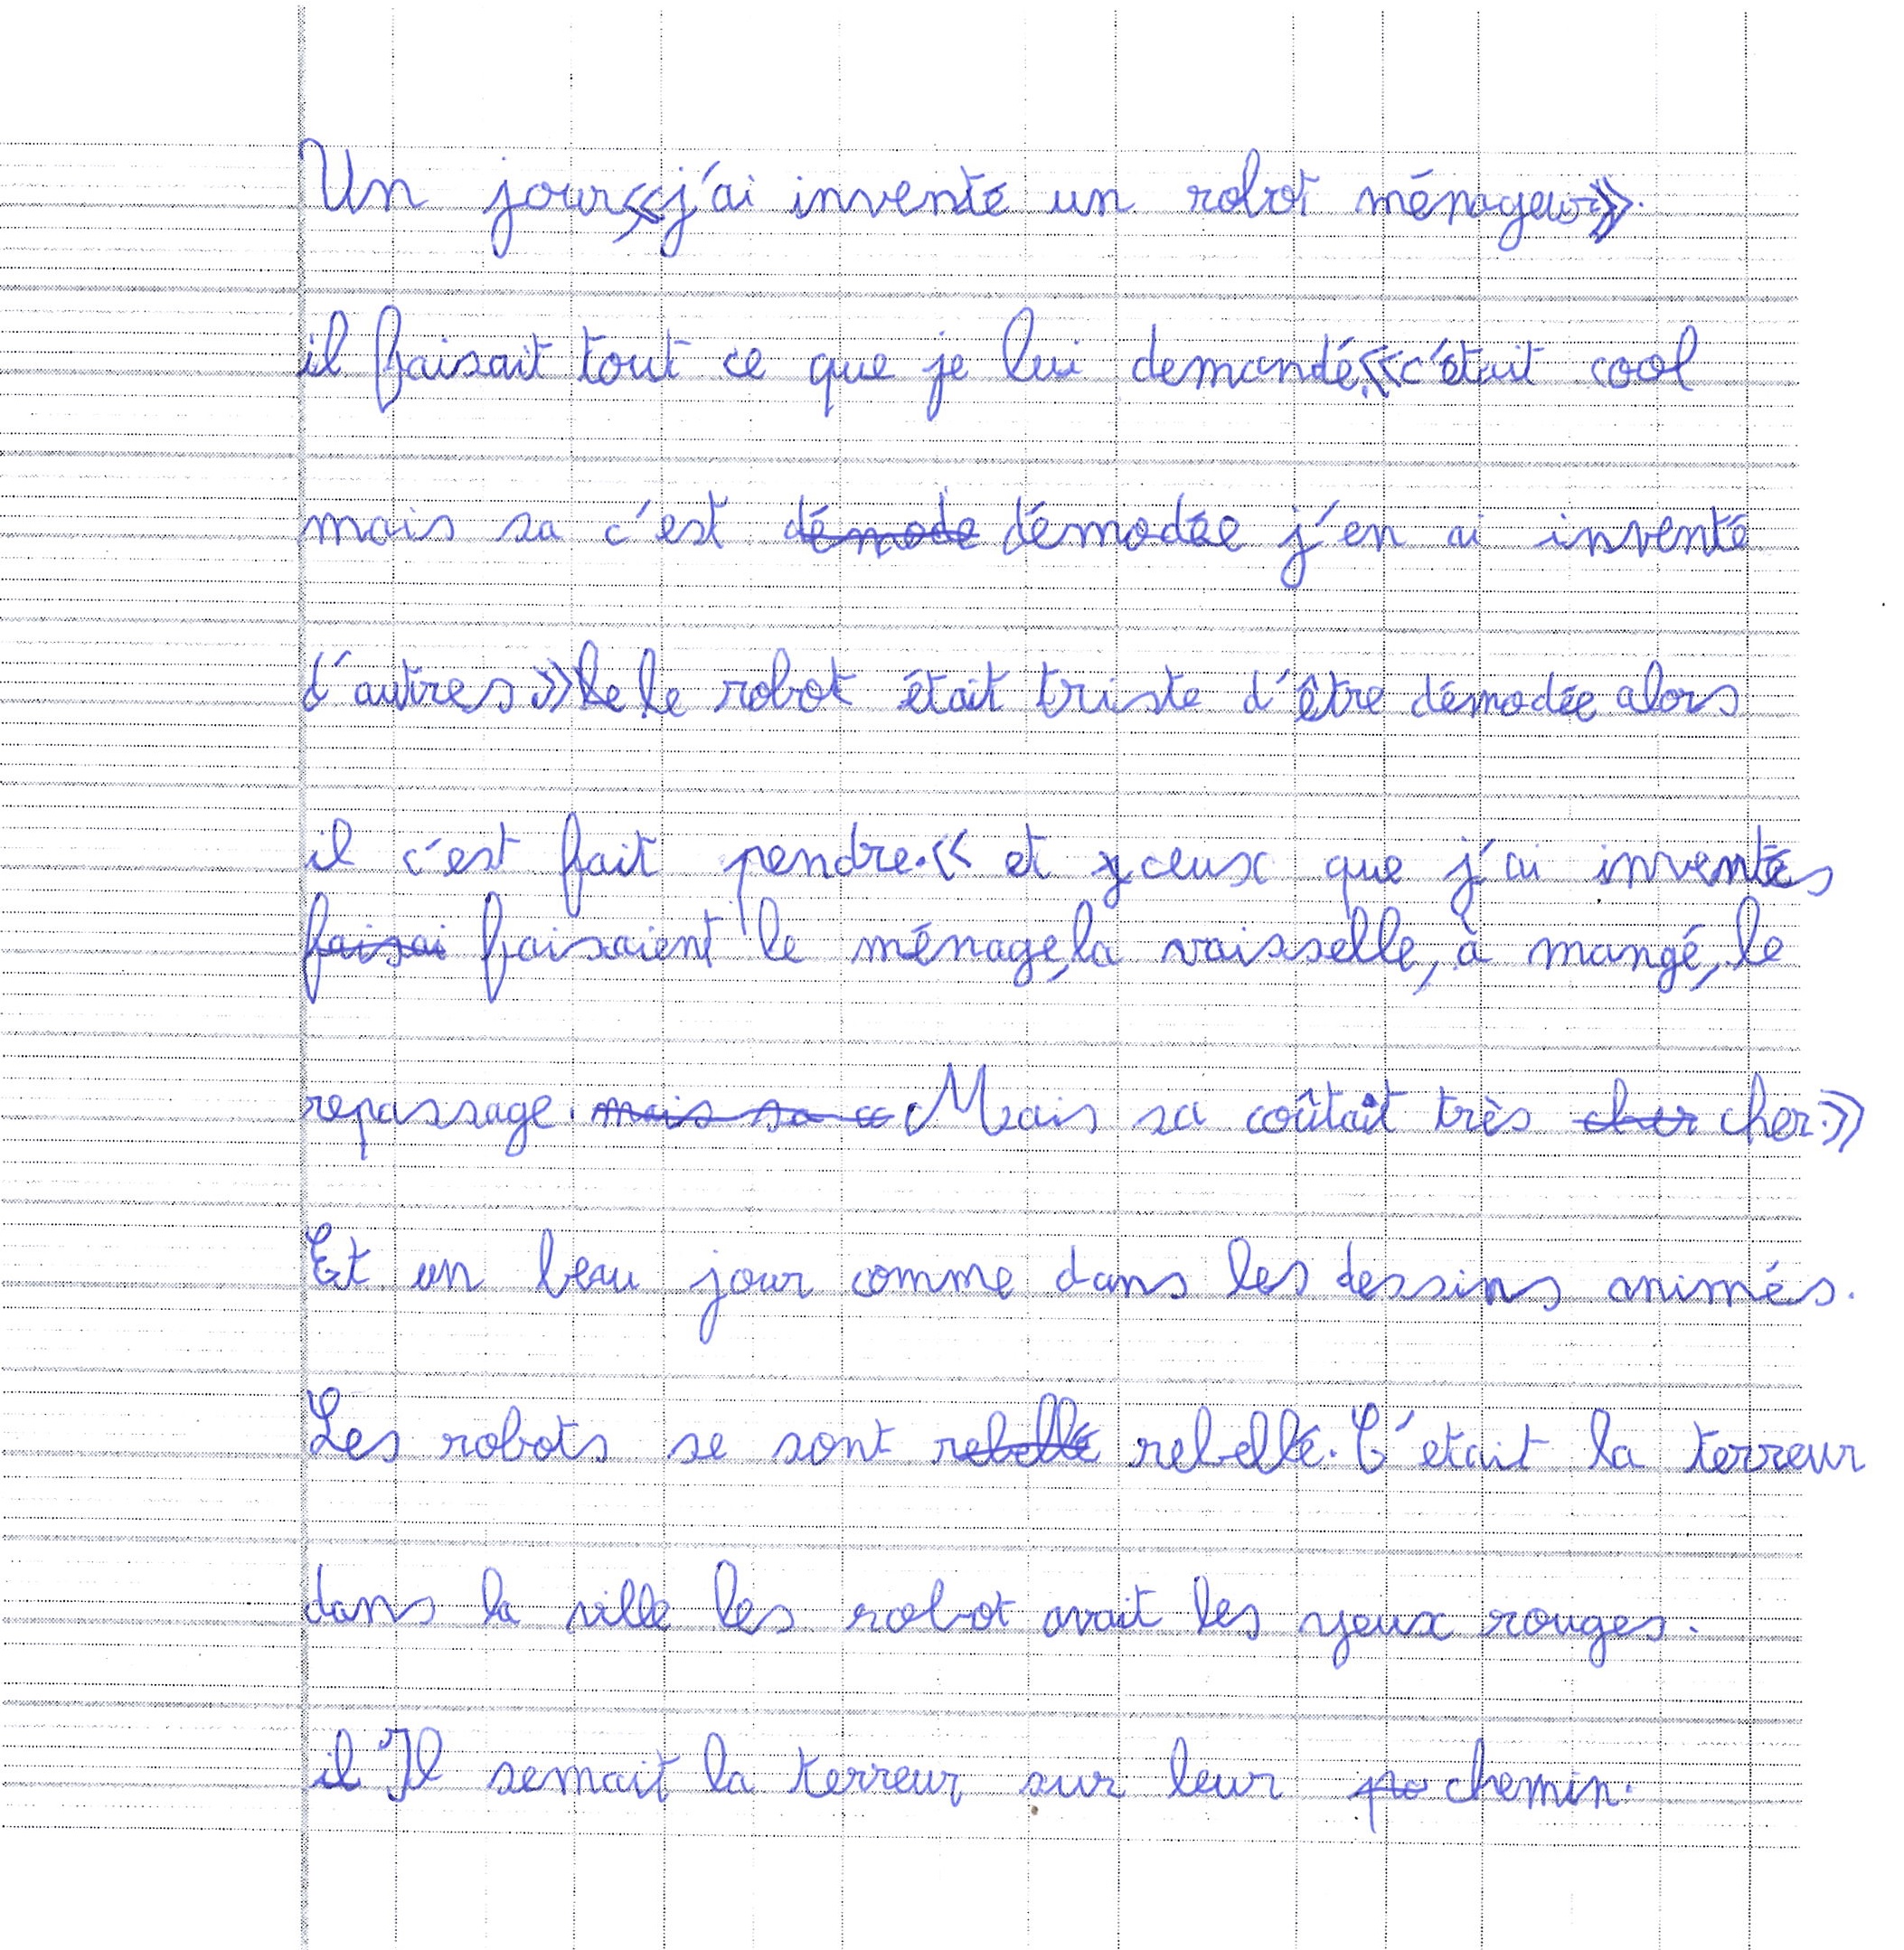 Un jour «j'ai inventé un robot ménager».
il faisait tout ce que je lui demandé. «c'était cool
mais sa c'est démode démodée j'en ai inventé
d'autres» Le le robot était triste d'être démodée alors
il c'est fait pendre. « et y ceux que j'ai inventés
faisai faisaient le ménage, la vaisselle, à mangé, le
repassage. mais sa c Mais sa coûtait très cher cher.»
Et un beau jour comme dans les dessins animés.
Les robots se sont rebellé rebellé. C'etait la terreur
dans la ville les robot avait les yeux rouges.
il Il semait la terreur sur leur pa chemin.